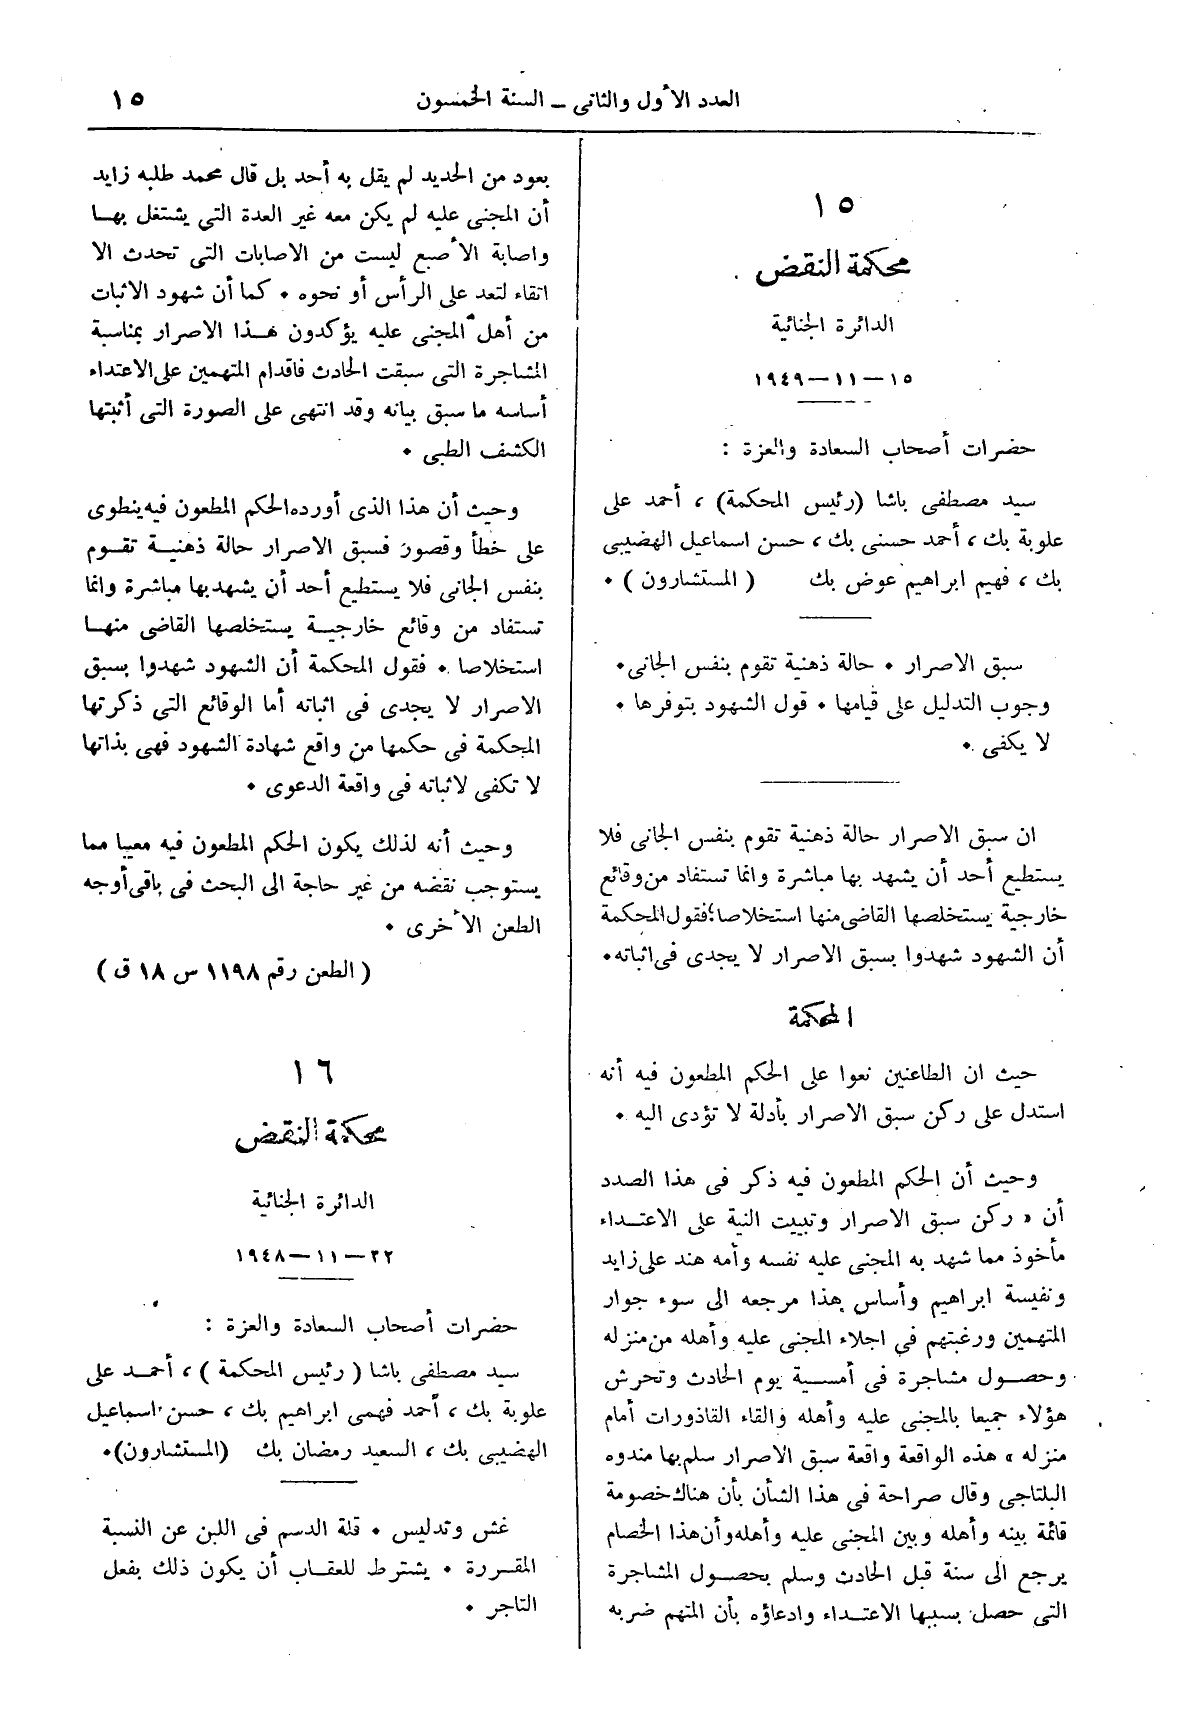 العدد الأول والثانى – السنة الخمسون
١٥
١٥
محكمة النقض
الدائرة الجنائية
١٥–١١–١٩٤٩
حضرات أصحاب السعادة والعزة :
سيد مصطفى باشا (رئيس المحكمة) ، أحمد على
علوبة بك ، أحمد حسنى بك ، حسن اسماعيل الهضيبى
بك ، فهيم ابراهيم عوض بك ( المستشارون ) .
سبق الاصرار . حالة ذهنية تقوم بنفس الجانى .
وجوب التدليل على قيامها . قول الشهود بتوفرها .
لا يكفى .
ان سبق الاصرار حالة ذهنية تقوم بنفس الجانى فلا
يستطيع أحد أن يشهد بها مباشرة وانما تستفاد من وقائع
خارجية يستخلصها القاضى منها استخلاصا ؛ فقول المحكمة
أن الشهود شهدوا بسبق الاصرار لا يجدى فى اثباته .
المحكمة
حيث ان الطاعنين نعوا على الحكم المطعون فيه أنه
استدل على ركن سبق الاصرار بأدلة لا تؤدى اليه .
وحيث أن الحكم المطعون فيه ذكر فى هذا الصدد
أن « ركن سبق الاصرار وتبييت النية على الاعتداء
مأخوذ مما شهد به المجنى عليه نفسه وأمه هند على زايد
ونفيسة ابراهيم وأساس هذا مرجعه الى سوء جوار
المتهمين ورغبتهم في اجلاء المجنى عليه وأهله من منزله
وحصول مشاجرة فى أمسية يوم الحادث وتحرش
هؤلاء جميعا بالمجنى عليه وأهله والقاء القاذورات أمام
منزله » هذه الواقعة واقعة سبق الاصرار سلم بها مندوه
البلتاجى وقال صراحة فى هذا الشأن بأن هناك خصومة
قائمة بينه وأهله وبين المجنى عليه وأهله وأن هذا الخصام
يرجع الى سنة قبل الحادث وسلم بحصول المشاجرة
التى حصل بسببها الاعتداء وادعاؤه بأن المتهم ضربه
بعود من الحديد لم يقل به أحد بل قال محمد طلبه زايد
أن المجنى عليه لم يكن معه غير العدة التى يشتغل بها
واصابة الأصبع ليست من الاصابات التى تحدث الا
اتقاء لتعد على الرأس أو نحوه . كما أن شهود الاثبات
من أهل المجنى عليه يؤكدون هذا الاصرار بمناسبة
المشاجرة التى سبقت الحادث فاقدام المتهمين على الاعتداء
أساسه ما سبق بيانه وقد انتهى على الصورة التى أثبتها
الكشف الطبى .
وحيث أن هذا الذى أورده الحكم المطعون فيه ينطوى
على خطأ وقصور فسبق الاصرار حالة ذهنية تقوم
بنفس الجانى فلا يستطيع أحد أن يشهد بها مباشرة وانما
تستفاد من وقائع خارجية يستخلصها القاضى منها
استخلاصا . فقول المحكمة أن الشهود شهدوا بسبق
الاصرار لا يجدى فى اثباته أما الوقائع التى ذكرتها
المحكمة فى حكمها من واقع شهادة الشهود فهى بذاتها
لا تكفى لاثباته فى واقعة الدعوى .
وحيث أنه لذلك يكون الحكم المطعون فيه معيبا مما
يستوجب نقضه من غير حاجة الى البحث فى باقى أوجه
الطعن الأخرى .
( الطعن رقم ١١٩٨ س ١٨ ق )
١٦
محكمة النقض
الدائرة الجنائية
٢٢–١١–١٩٤٨
حضرات أصحاب السعادة والعزة :
سيد مصطفى باشا ( رئيس المحكمة ) ، أحمد على
علوبة بك ، أحمد فهمى ابراهيم بك ، حسن اسماعيل
الهضيبى بك ، السعيد رمضان بك (المستشارون).
غش وتدليس . قلة الدسم فى اللبن عن النسبة
المقررة . يشترط للعقاب أن يكون ذلك بفعل
التاجر .